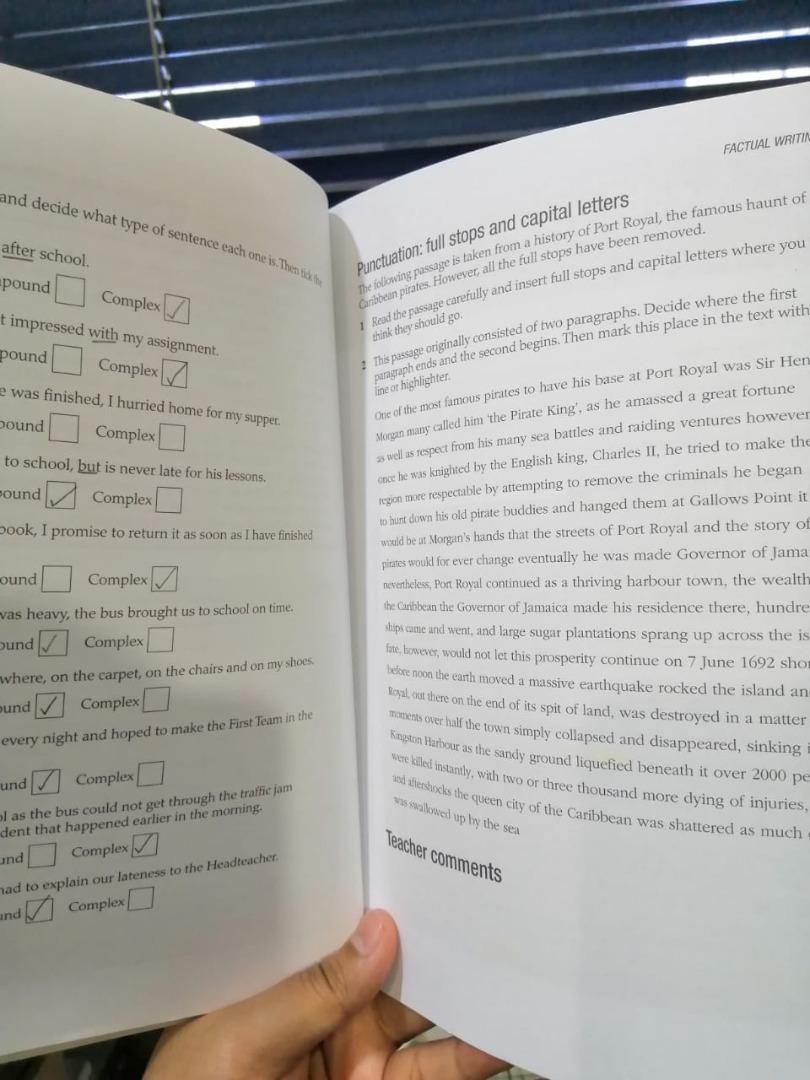 and decide what type of sentence each one is. Then tick the
after school.
pound Complex
t impressed with my assignment.
pound Complex
e was finished, I hurried home for my supper.
ound Complex
to school, but is never late for his lessons.
ound Complex
book, I promise to return it as soon as I have finished
ound Complex
was heavy, the bus brought us to school on time.
ound Complex
where, on the carpet, on the chairs and on my shoes.
und Complex
every night and hoped to make the First Team in the
und Complex
ol as the bus could not get through the traffic jam
dent that happened earlier in the morning.
und Complex
had to explain our lateness to the Headteacher.
und Complex
FACTUAL WRITIN
Punctuation: full stops and capital letters
The following passage is taken from a history of Port Royal, the famous haunt of
Caribbean pirates. However, all the full stops have been removed.
1 Read the passage carefully and insert full stops and capital letters where you
think they should go.
2 This passage originally consisted of two paragraphs. Decide where the first
paragraph ends and the second begins. Then mark this place in the text with
line or highlighter.
One of the most famous pirates to have his base at Port Royal was Sir Hen
Morgan many called him 'the Pirate King', as he amassed a great fortune
as well as respect from his many sea battles and raiding ventures however
once he was knighted by the English king, Charles II, he tried to make the
region more respectable by attempting to remove the criminals he began
to hunt down his old pirate buddies and hanged them at Gallows Point it
would be at Morgan's hands that the streets of Port Royal and the story of
pirates would for ever change eventually he was made Governor of Jama
nevertheless, Port Royal continued as a thriving harbour town, the wealth
the Caribbean the Governor of Jamaica made his residence there, hundre
ships came and went, and large sugar plantations sprang up across the is
fate, however, would not let this prosperity continue on 7 June 1692 shor
before noon the earth moved a massive earthquake rocked the island an
Royal, out there on the end of its spit of land, was destroyed in a matter
moments over half the town simply collapsed and disappeared, sinking i
Kingston Harbour as the sandy ground liquefied beneath it over 2000 pe
were killed instantly, with two or three thousand more dying of injuries,
and aftershocks the queen city of the Caribbean was shattered as much
was swallowed up by the sea
Teacher comments